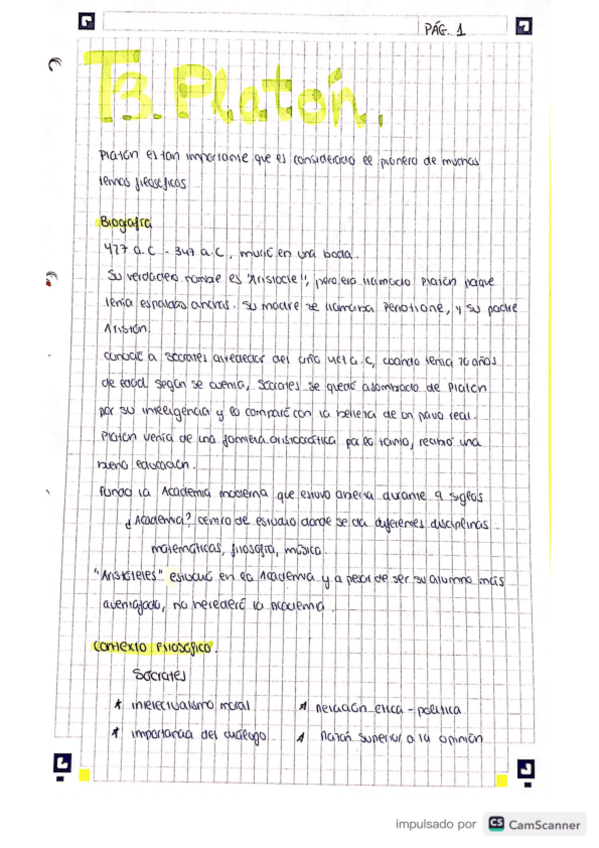 PÁG. 1
T3. Platón.
Platón es tan importante que es considerado el pionero de muchos
temas filosóficos
Biografía
427 a.C - 347 a.C, murió en una boda.
Su verdadero nombre es "Aristocle", pero era llamado Platón porque
tenía espaldas anchas. Su madre se llamaba Periotione, y su padre
Aristón.
conoció a Sócrates alrededor del año a.C, cuando tenía 20 años
de edad. Según se cuenta, Sócrates se quedó asombrado de Platón
por su inteligencia y lo comparó con la belleza de un pavo real.
Platón venía de una familia aristocrática por lo tanto, recibió una
buena educación.
Fundó la Academia moderna que estuvo abierta durante 9 siglos
¿Academia? centro de estudio donde se da diferentes disciplinas.
matemáticas, filosofía, música.
"Aristóteles" estudió en la Academia y a pesar de ser su alumno más
aventajado, no herederó la academia.
Contexto Filosófico.
Sócrates
* intelectualismo moral * Relación ética - política
* importancia del diálogo * Razón superior a la opinión
impulsado por CS CamScanner